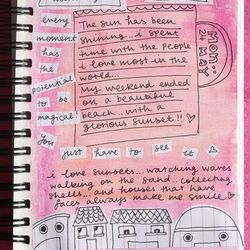 every
moment
has
the
potential
to
be
magical!
The sun has been
shining... i spent
time with the people
i love most in the
world...
my weekend ended
on a beautiful
beach.. with a
glorious sunset!!
MON:
24
MAY
You
just have to see it
i love sunsets... watching waves
walking on the sand.. collecting
shells... and houses that have
faces always make me smile